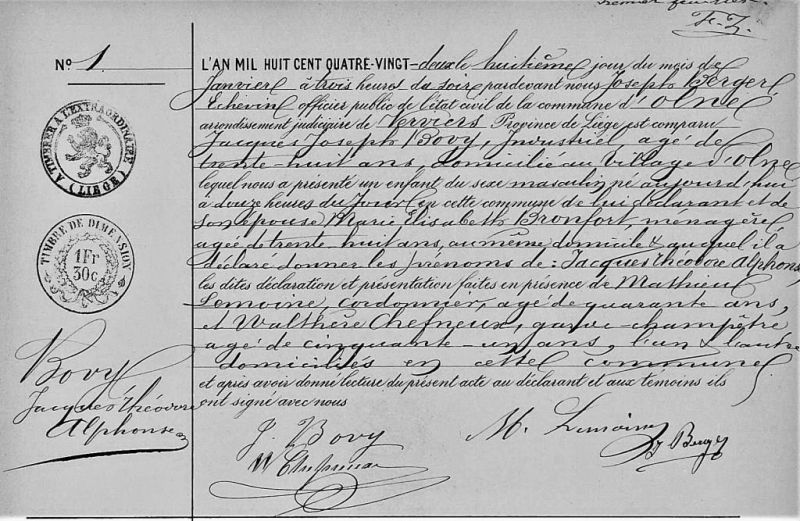 F. Z.
N° 1.
L'AN MIL HUIT CENT QUATRE-VINGT-deux le huitième jour du mois de
Janvier à trois heures du soir pardevant nous Joseph Berger,
Echevin officier public de l'état civil de la commune d'Olne
arrondissement judiciaire de Verviers Province de Liége est comparu
Jacques Joseph Bovy, Industriel, agé de
trente-huit ans, domicilié au village d'Olne
lequel nous a présenté un enfant du sexe masculin né aujourd'hui
à douze heures du jour en cette commune de lui déclarant et de
son épouse Marie Elisabeth Bronfort, ménagère,
agée de trente huit ans, au même domicile & auquel il a
déclaré donner les prénoms de : Jacques Théodore Alphonse,
les dites déclaration et présentation faites en présence de Mathieu
Lemoine, cordonnier, agé de quarante ans,
et Walthère Chefneux, garde-champêtre
agé de cinquante-un ans, l'un & l'autre
domiciliés en cette commune
et après avoir donné lecture du présent acte au déclarant et aux témoins ils
ont signé avec nous
J. Bovy
M. Lemoine
W Chefneux
J. Berger
A TIMBRER A L'EXTRAORDINAIRE
(LIÉGE)
TIMBRE DE DIMENSION
1 Fr
30 c.
Bovy
Jacques Théodore
Alphonse